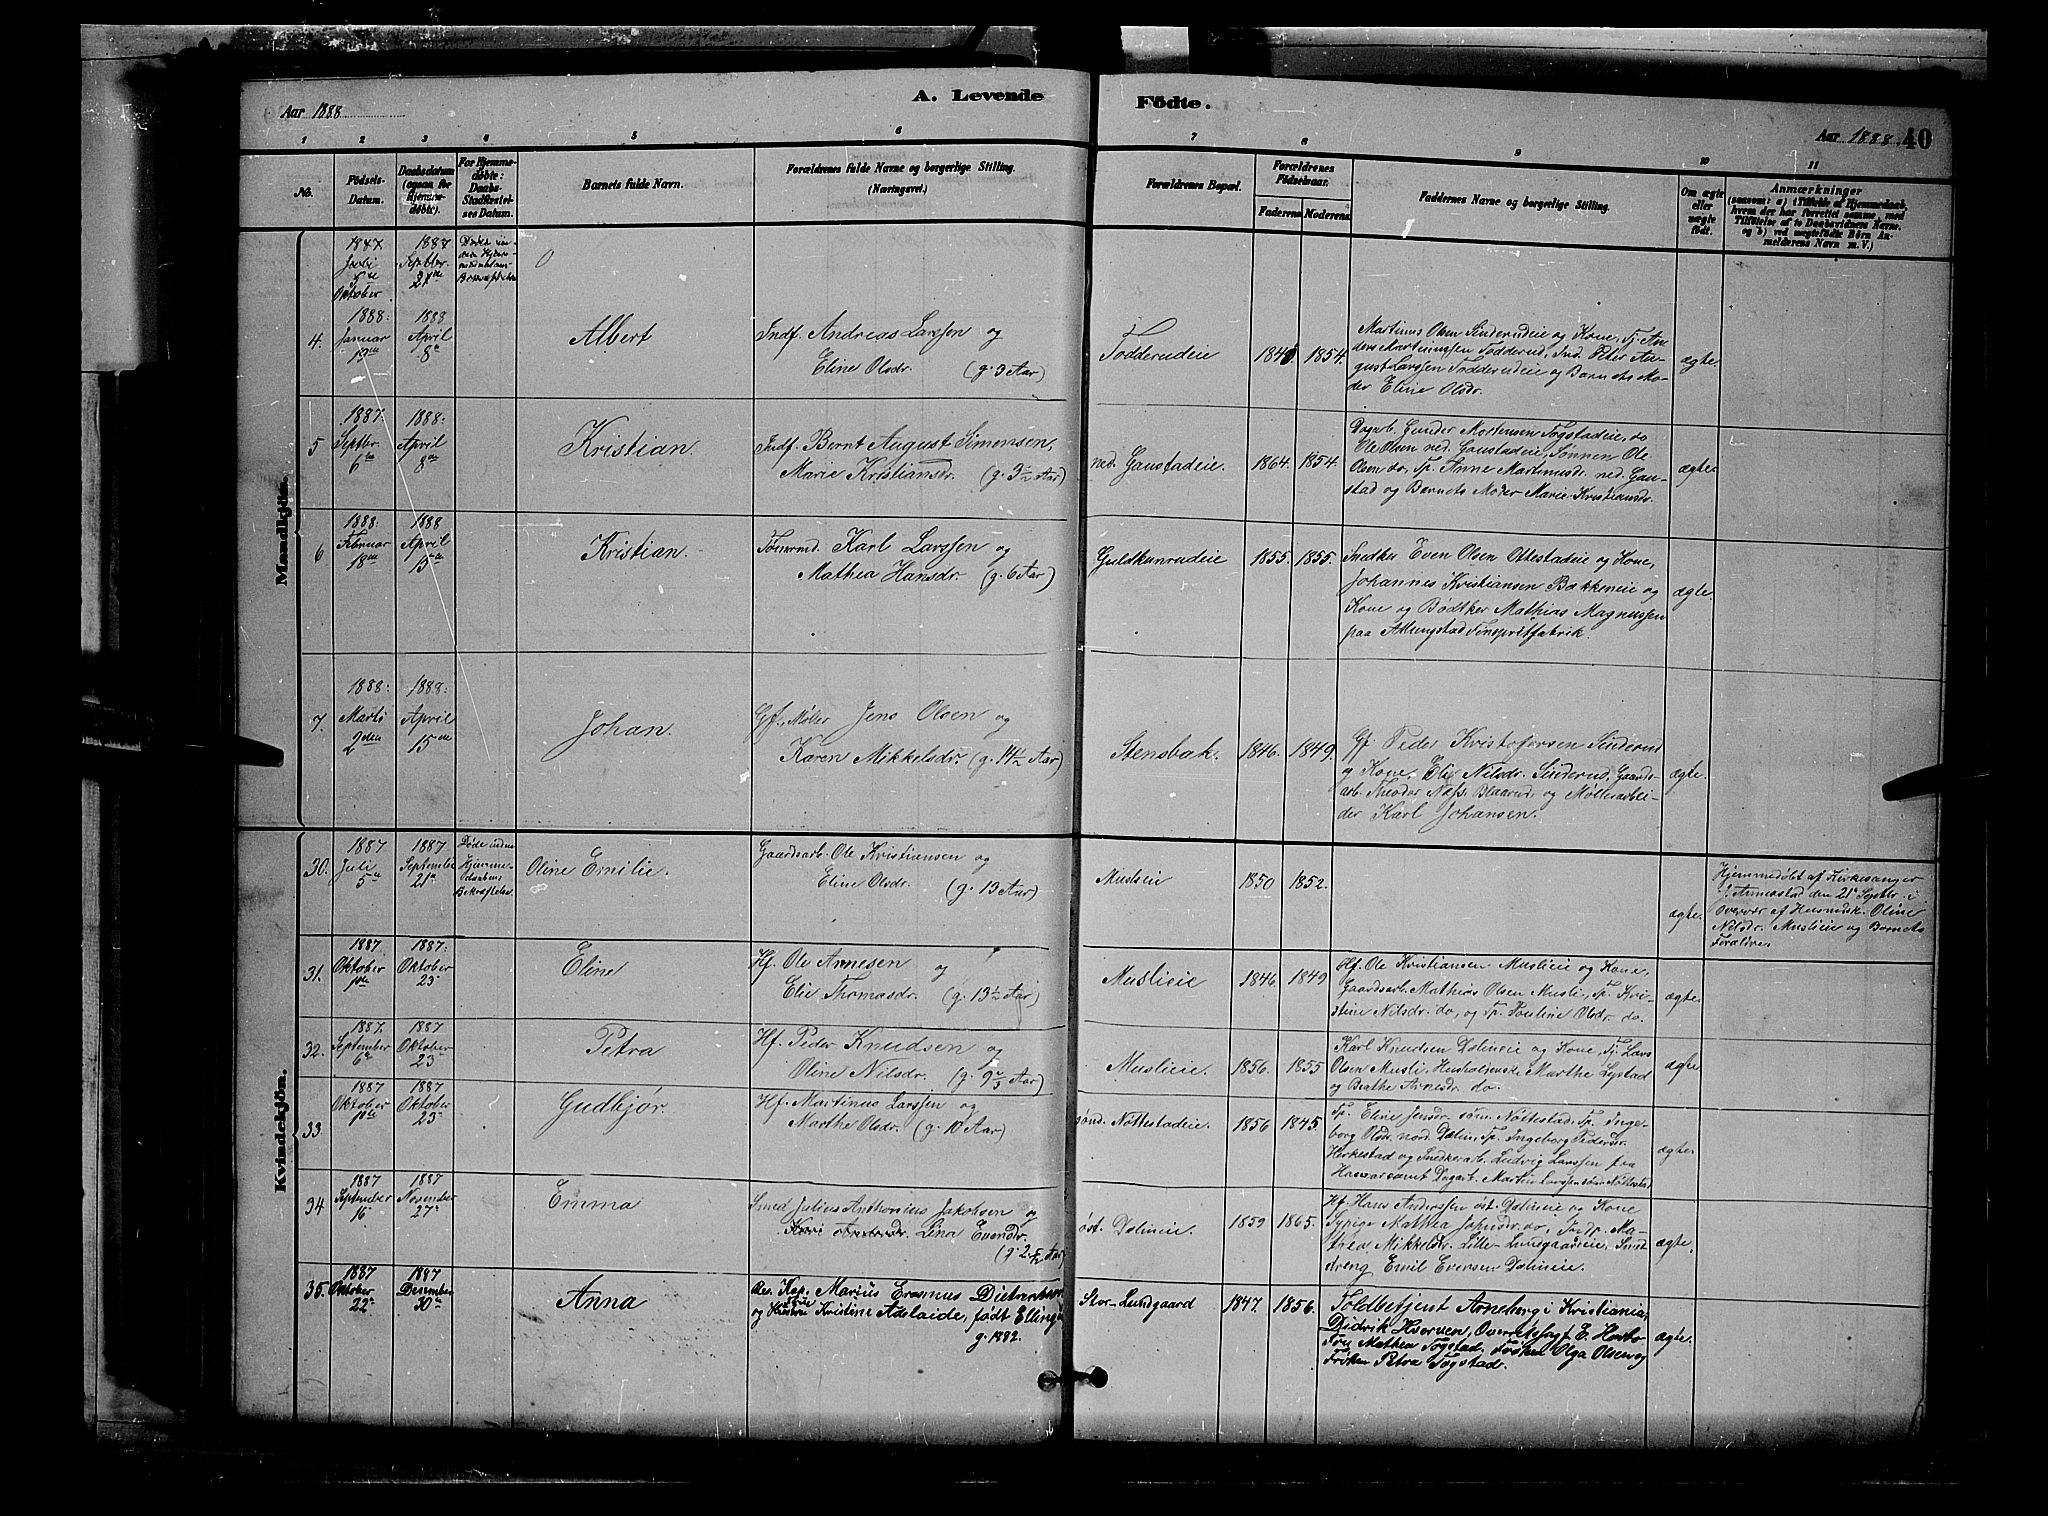 Aar 1888
A. Levende
Födte.
Aar 1888
40
1 2 3 4 5 6 7 8 9 10 11
No.
Födsels-
Datum.
Daabsdatum
(ogsaa for
Hjemme-
döbte).
For Hjemme-
döbte:
Daabs-
Stadfæstel-
ses Datum.
Barnets fulde Navn.
Forældrenes fulde Navne og borgerlige Stilling.
(Næringsvei.)
Forældrenes Bopæl.
Forældrenes
Födselsaar.
Faderens.
Moderens.
Faddernes Navne og borgerlige Stilling.
Om ægte
eller
uægte
født.
Anmærkninger
(saasom: a) i Tilfælde af Hjemmedaab,
hvem der har forrettet samme, med
Tilføielse af to Daabsvidners Navne,
og b) ved uægtefödte Börn An-
melderens Navn m. V.)
Mandkjön.
Oktober
1887
Septbr.
27de
4.
1888:
Januar
1888
April
8de
Albert
Indf. Andreas Larssen og
Eline Olsdr. (g. 3 Aar)
Todderudeie
1854.
Martinus Olsen Sinderudeie og Kone, Tj. An-
ders Martinussen Todderud, Ind. Peter Au-
gust Larssen Todderudeie og Barnets Mo-
der Eline Olsdr.
ægte.
5
1887:
Septbr.
6te
1888:
April
8de
Kristian.
Indf. Bernt August Simensen,
Marie Kristiansdr. (g. 3½ Aar)
ned. Gaustadeie.
1864.
1854.
Dagarb. Gunder Mortensen Togstadeie, do
Ole Olsen ned. Gaustadeie, Sönnen Ole
Olsen do, Tp. Anne Martinusdr. ned. Gau-
stad og Barnets Moder Marie Kristiansdr.
ægte.
6
1888:
Februar
18de
1888
April
15de
Kristian.
Tömrmd. Karl Larssen og
Mathea Hansdr. (g. 6 Aar)
Guldkunrudeie
1855.
1855.
Snedker Even Olsen Ottestadeie og Kone,
Johannes Kristiansen Bakkeneie og
Kone og Bödtker Mathias Magnussen
paa Allungstad Finspritfabrik.
ægte.
7.
1888:
Marts
2den
1888:
April
15de
Johan.
Gf. Møller Jens Olsen og
Karen Mikkelsdr. (g. 14½ Aar)
Stensbak.
1846.
1849.
Gf. Peder Kristofersen Sinderud
og Kone. Elie Nilsdr. Sinderud, Gaards-
arb. Theodor Næss, Blaarud og Møllerarbei-
der Karl Johansen.
ægte.
Kvindekjön.
30.
1887
Juli
5te
1887
September
21de
Døde uden
Hjemme-
daabens
Bekræftelse.
Oline Emilie.
Gaardsarb. Ole Kristiansen og
Eline Olsdr. (g. 13 Aar)
Muslieie
1850
1852.
ægte.
Hjemmedøbt af Kirkesanger
Arnestad den 21de Septbr. i
Overvær af Husmsk. Oline
Nilsdr. Muslieie og Barnets
Forældre.
31.
1887.
Oktober
1ste
1887:
Oktober
23
Eline
Hf. Ole Arnesen og
Elie Thomasdr. (g. 13½ Aar)
Muslieie
1846.
1849
Hf. Ole Kristiansen Muslieie og Kone,
Gaardsarb. Mathias Olsen Musli, Tp. Kri-
stine Nilsdr. do, og Tp. Pauline Olsdr. do.
ægte.
32.
1887.
September
6te
1887
Oktober
23
Petra
Hf. Peder Knudsen og
Oline Nilsdr. (g. 9⅔ Aar)
Muslieie.
1856.
1855
Karl Knudsen Dælineie og Kone, Tj. Lars
Olsen Musli, Husholderske Marthe Lystad
og Berthe Arnesdr. do.
ægte
33
1887
Oktober
1ste
1887
Oktober
23
Gudbjør.
Hf. Martinus Larssen og
Marthe Olsdr. (g. 10 Aar)
sønd. Nøttestadeie.
1856
1845.
Tp. Eline Jensdr. søn. Nöttestad, Tp. Inge-
borg Olsdr. nord. Dælin, Tp. Ingeborg Pedersdr.
Herkestad og Snedkerarb. Ludvig Larssen fra
Hamar samt Dagarb. Martin Larsen søn. Nöttestad
ægte.
34
1887
September
16
1887
November
27de
Emma
Smed Julius Anthonius Jakobsen og
Lina Evensdr.
(g. 2 5/12 Aar)
öst. Dælineie.
1859
1865.
Hf. Hans Anderssen öst. Dælineie og Kone
Typige Mathea Johnsdr. do, Jordp. Ma-
thea Mikkelsdr. Lille-Lundgaardeie, Smed-
dreng Emil Evensen Dælineie.
ægte.
35.
1887
Oktober
22de
1887
Desember
30te
Anna
Res. Kap. Marius Erasmus Dietrichson
og Hustru Kristine Adelaide, født Ellingsen
g. 1882.
Stor-Lundgaard
1847.
1856.
Toldbetjent Arneberg i Kristiania,
Didrik Hverven, Overretssagf. E. Horbo
Fru Mathea Togstad, Frøken Olga Olsen og
Frøken Petra Togstad.
ægte.